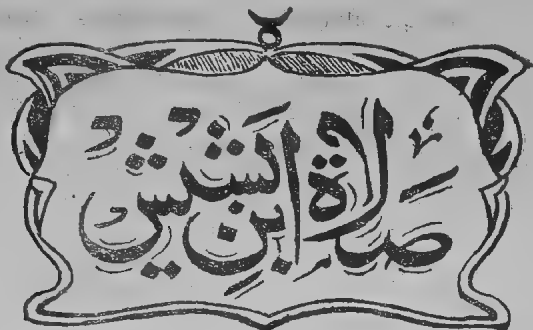 صلاة ابن بشيش